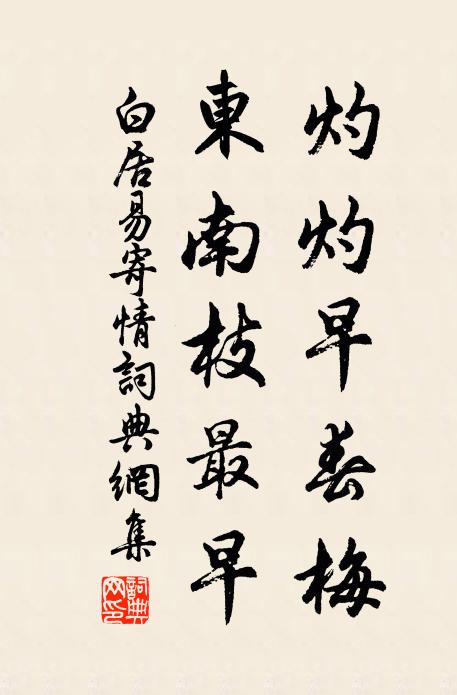 灼灼早春梅
東南枝最早
白居易寄情詞典網集
詞典網印